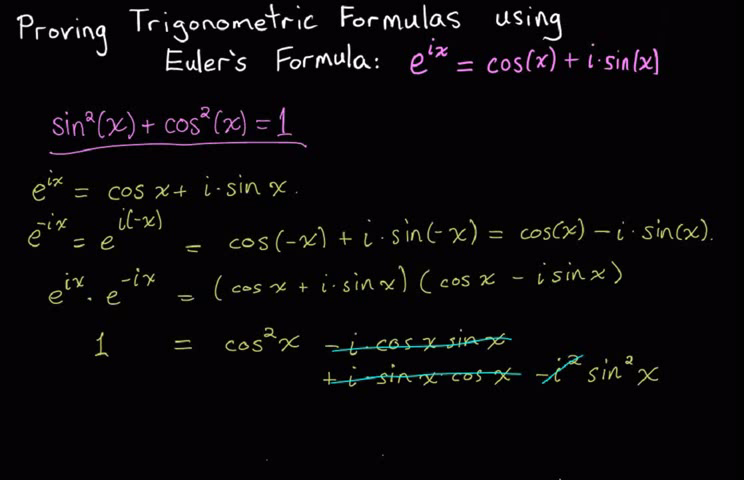 Proving Trigonometric Formulas using
Euler's Formula: e^{ix} = cos(x) + i·sin(x)
sin²(x) + cos²(x) = 1
e^{ix} = cos x + i·sin x.
e^{-ix} = e^{i(-x)} = cos(-x) + i·sin(-x) = cos(x) - i·sin(x).
e^{ix} · e^{-ix} = (cos x + i·sin x)(cos x - i sin x)
1 = cos²x - i·cos x sin x
+ i·sin x·cos x - i² sin²x